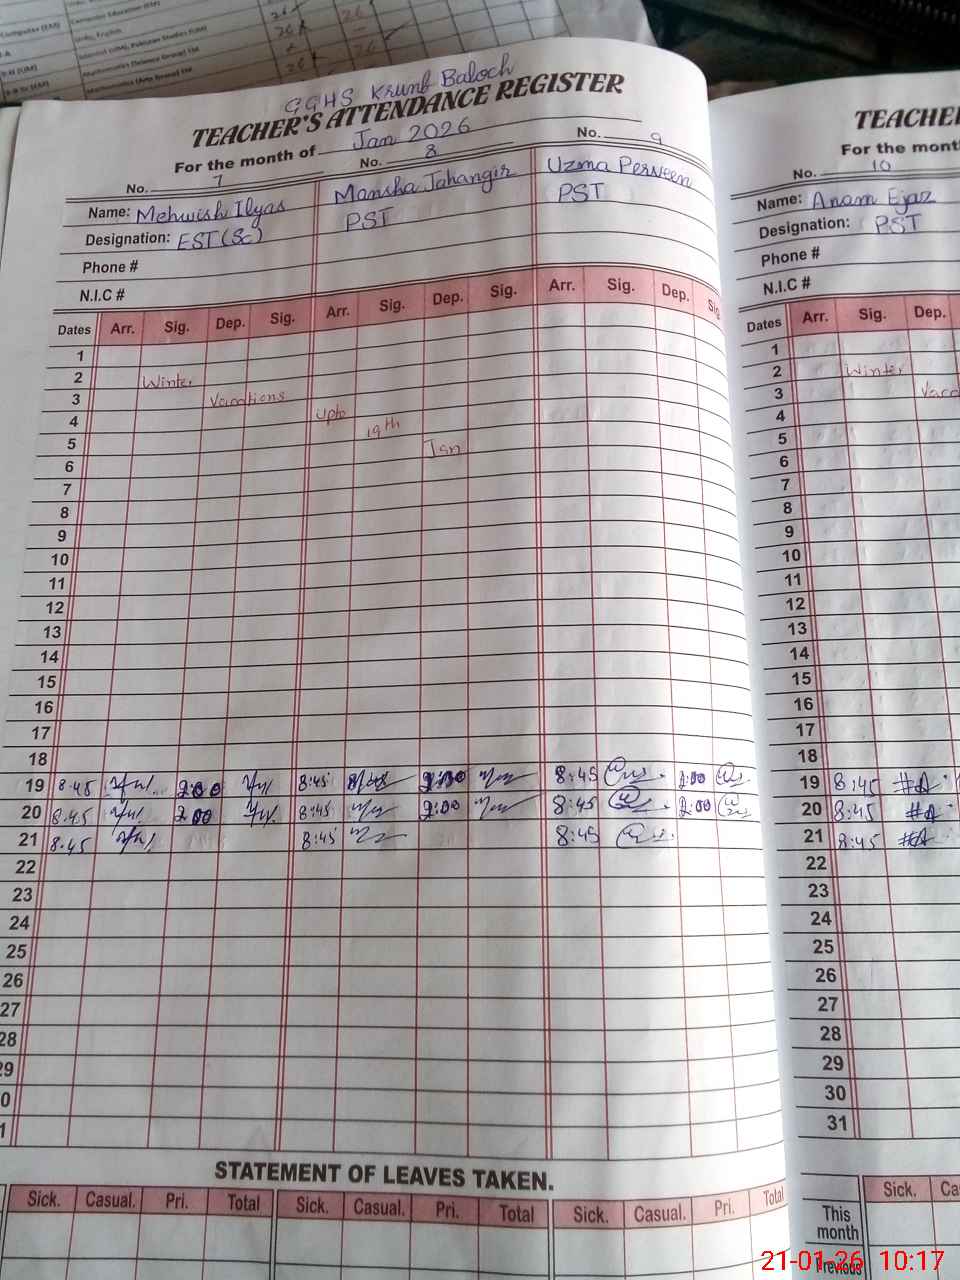 Computer (EM)
Computer Education (EM)
Urdu, English
GGHS Krunb Baloch
TEACHER'S ATTENDANCE REGISTER
For the month of Jan 2026
No. 7 No. 8 No. 9
Name: Mehwish Ilyas Mansha Jahangir Uzma Perveen
Designation: EST (Sc) PST PST
Phone #
N.I.C #
Dates Arr. Sig. Dep. Sig. Arr. Sig. Dep. Sig. Arr. Sig. Dep. Sig
1
2 Winter
3 Vacations
4 upto
5 19th
6 Jan
7
8
9
10
11
12
13
14
15
16
17
18
19 8.45 2:00 8:45 2:00 8:45 2:00
20 8.45 2 00 8:45 2:00 8:45 2:00
21 8.45 8:45 8:45
22
23
24
25
26
27
28
29
0
1
STATEMENT OF LEAVES TAKEN.
Sick. Casual. Pri. Total Sick. Casual. Pri. Total Sick. Casual. Pri. Total
TEACHE
For the mont
No. 10
Name: Anam Ejaz
Designation: PST
Phone #
N.I.C #
Dates Arr. Sig. Dep.
1
2 Winter
3 Vaca
4
5
6
7
8
9
10
11
12
13
14
15
16
17
18
19 8:45
20 8:45
21 8:45
22
23
24
25
26
27
28
29
30
31
Sick. Ca
This
month
Previous
21-01-26 10:17